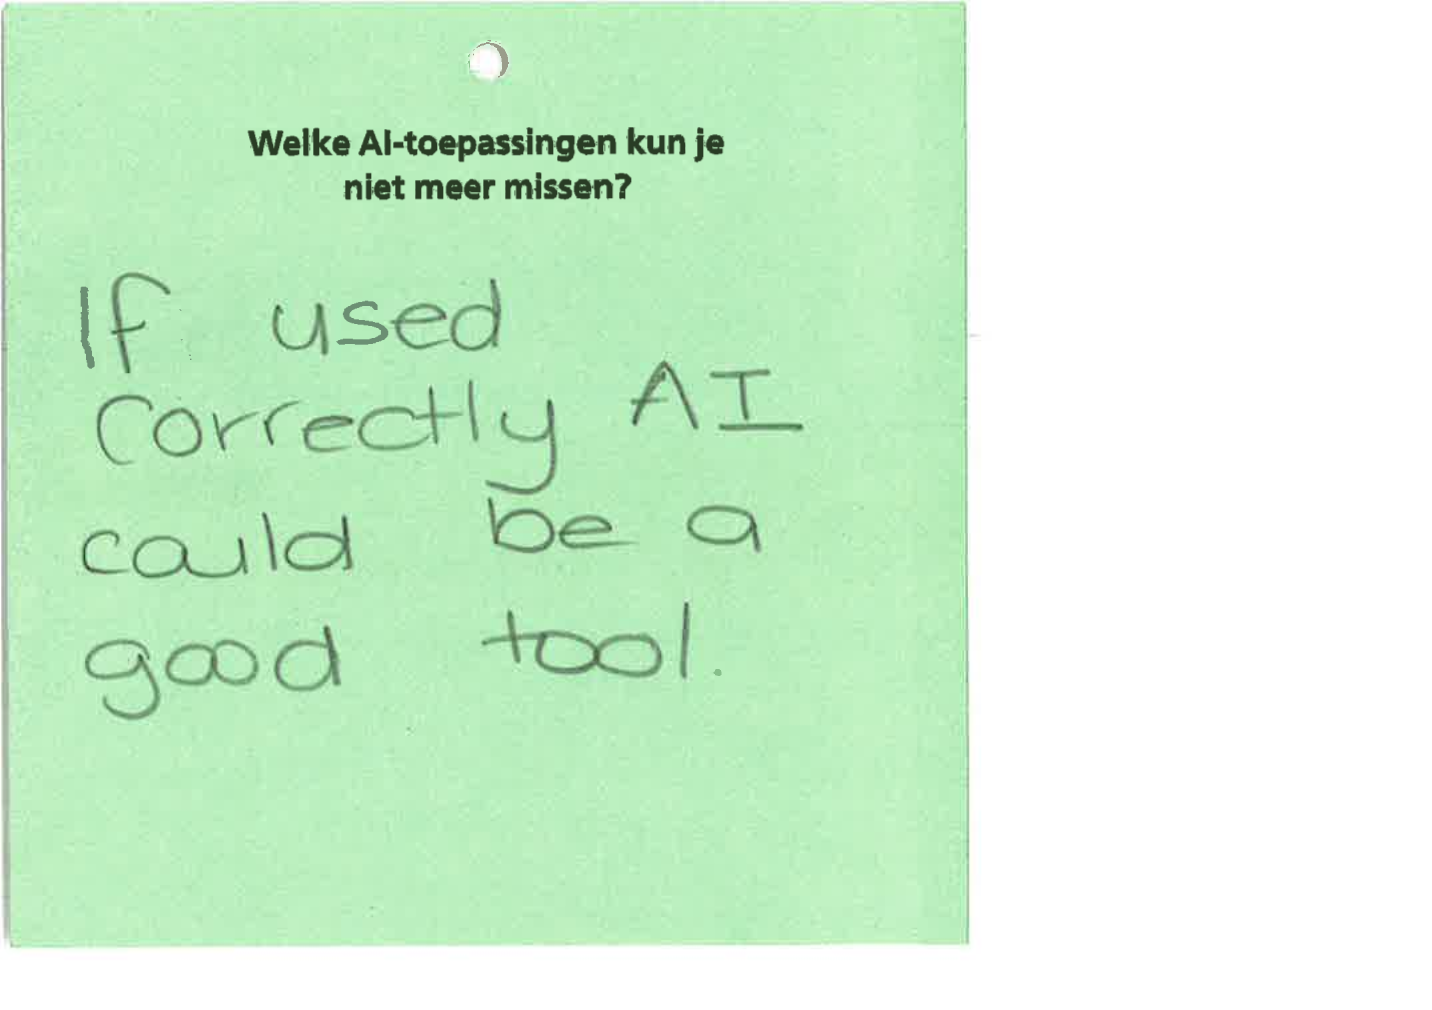 Welke AI-toepassingen kun je
niet meer missen?
If used
correctly AI
could be a
good tool.